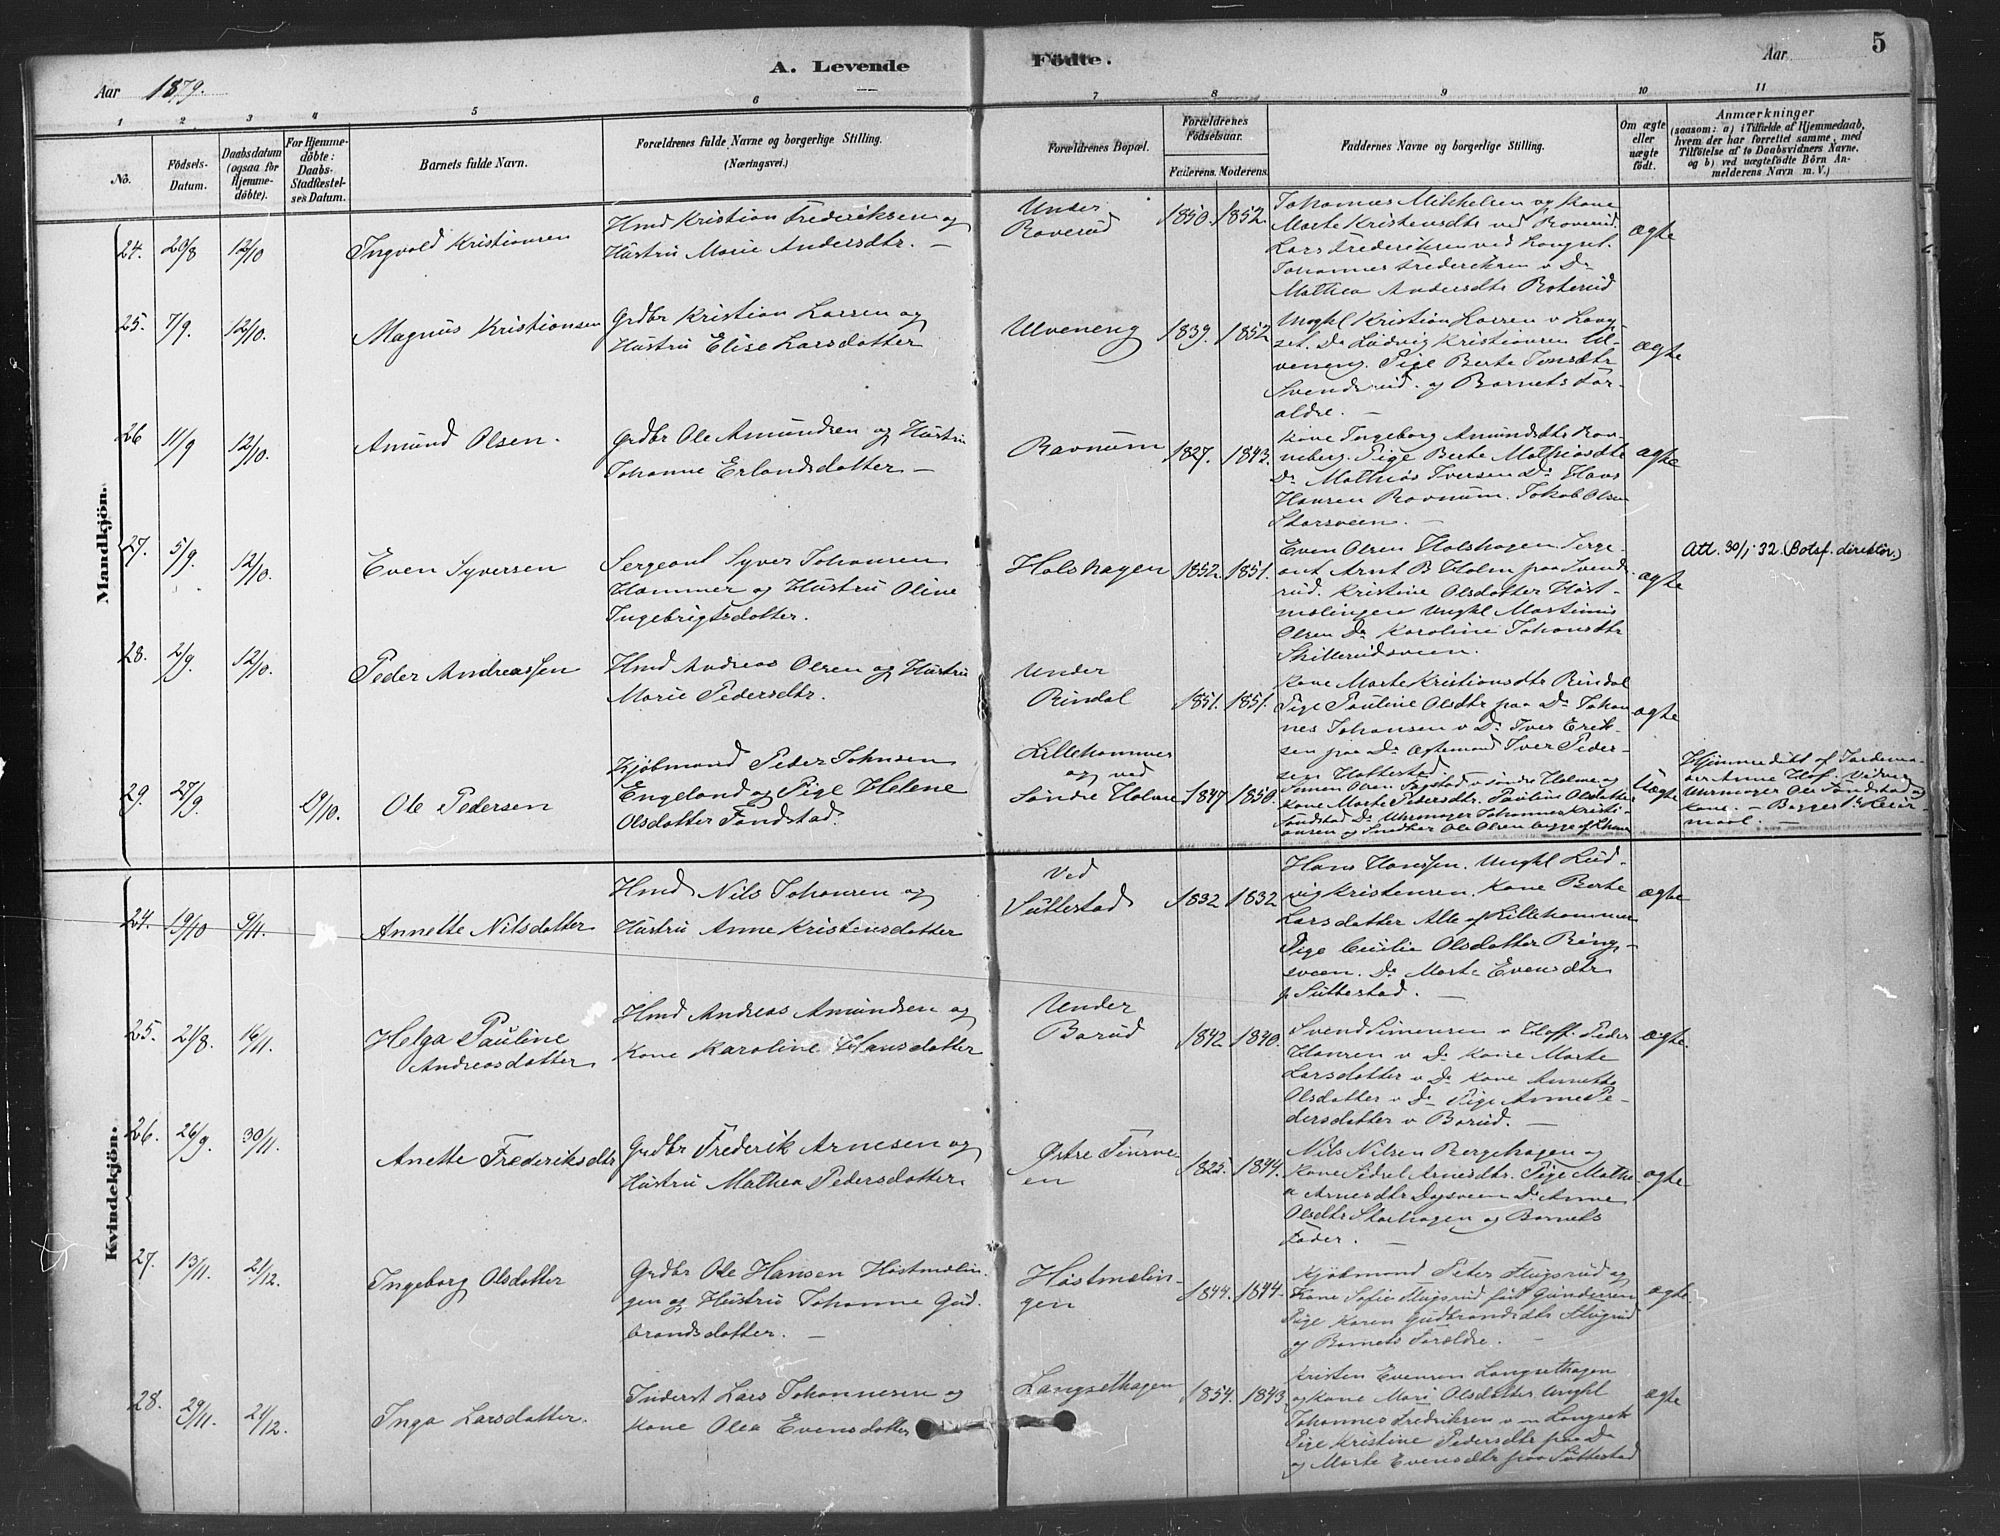 A. Levende Födte.
5
Aar 1879.
Aar
1 2 3 4 5 6 7 8 9 10 11
No.
Födsels-Datum.
Daabsdatum (ogsaa for Hjemmedöbte).
For Hjemmedöbte: Daabs-Stadfæstelses Datum.
Barnets fulde Navn.
Forældrenes fulde Navne og borgerlige Stilling. (Næringsvei.)
Forældrenes Bopæl.
Forældrenes Födselsaar.
Faderens. Moderens.
Faddernes Navne og borgerlige Stilling.
Om ægte eller uægte født.
Anmærkninger
(saasom: a) i Tilfælde af Hjemmedaab,
hvem der har forrettet samme, med
Tilföielse af to Daabsvidners Navne,
og b) ved uægtefödte Börn Anmelderens Navn m. V.)
Mandkjön.
24. 20/8 12/10 Ingvald Kristiansen
Hmd Kristian Frederiksen og
Hustru Marie Andersdtr. –
Under
Roverud
1850. 1852.
Johannes Mikkelsen og Kone
Marte Kristensdtr ved Roverud.
Lars Frederiksen ved Longset.
Johannes Frederiksen v Do
Mathea Andersdtr Roterud
Ægte
25. 7/9. 12/10. Magnus Kristiansen
Grdbr Kristian Larsen og
Hustru Elise Larsdatter
Ulveneng
1839. 1852
Unghl Kristian Larsen v Lang-
set. Do Ludvig Kristiansen Ul-
veneng. Pige Berte Jensdtr
Svendsrud. og Barnets For-
ældre. –
ægte
26 11/9 12/10. Amund Olsen.
Grdbr Ole Amundsen og Hustru
Johanne Erlandsdatter –
Ravnum
1827. 1843.
Kone Ingeborg Amundsdtr Rov-
neberg. Pige Berte Mathiasdtr
Do Mathias Iversen Do Hans
Hansen Ravnum. Jakob Olsen
Storsveen. –
ægte
27. 5/9. 12/10. Even Syversen
Sergeant Syver Johansen
Hammer og Hustru Oline
Ingebrigtsdatter.
Holshagen
1852. 1851.
Even Olsen Holshagen Serge-
ant Arnt B Holm paa Svends-
rud. Kristine Olsdatter Høst-
mælingen Unghl Martinus
Olsen Do Karoline Johansdtr
Skillerudsveen.
ægte
Att. 30/1 32. (Botsf. direktör.)
28. 2/9. 12/10. Peder Andreassen
Hmd Andreas Olsen og Hustru
Marie Pedersdtr.
Under
Rindal
1851. 1851.
Kone Marte Kristiansdtr Rindal
Pige Pauline Olsdtr paa Do Johan-
nes Johansen v Do Iver Erik-
sen paa Do Ægtemand Iver Peder-
sen Hattestad
ægte
29. 27/9. 19/10. Ole Pedersen
Kjøbmand Peder Johnsen
Engeland og Pige Helene
Olsdatter Fondstad.
Lillehammer
og ved
Søndre Holme
1847 1850.
Simen Olsen v Søndre Holme og
Kone Marte Pedersdtr. Pauline Olsdatter
Fondstad Do Uhrmager Johannes Kristi-
ansen og Snedker Ole Olsen begge af Lham
Uægte
Hjemmedøbt af Jordemo-
der Anne Hof. Vidner
Uhrmager Ole Fondstad og
Kone. –
Kvindekjön.
24. 19/10 9/11. Annette Nilsdatter
Hmd Nils Johansen og
Hustru Anne Kristensdatter
Ved
Suttestad
1832 1832
Hans Hanssen. Unghl Lud-
vig Kristensen. Kone Berte
Larsdatter Alle af Lillehammer
Pige Cecilie Olsdatter Rings-
veen. Do Marte Evensdtr
p Suttestad. –
ægte
25. 21/8. 16/11. Helga Pauline
Andreasdatter
Hmd Andreas Amundsen og
Kone Karoline Hansdatter
Under
Borud
1842 1840.
Svend Simensen v Hoff. Peder
Hansen v Do Kone Marte
Larsdatter v Do Kone Annette
Olsdatter v Do Pige Anne Pe-
dersdatter v Borud.
ægte.
26. 26/9. 30/11. Anette Frederiksdtr
Grdbr Frederik Arnesen og
Hustru Mathea Pedersdatter.
Østre Finsve-
en
1825. 1844.
Nils Nilsen Bergehagen og
Kone Sidsel Arnesdtr. Pige Mathe-
a Arnesdtr Dagsveen Do Anne
Olsdtr Storhagen og Barnets
Fader. –
ægte
27. 13/11. 21/12. Ingeborg Olsdatter
Grdbr Ole Hansen Høstmælin-
gen og Hustru Johanne Gud-
brandsdatter. –
Høstmælin-
gen
1844. 1844.
Kjøbmand Peter Flugsrud og
Kone Sofie Flugsrud født Gundersen
Pige Karen Gudbrandsdtr Flugsrud
og Barnets Forældre. –
ægte.
28. 29/11. 21/12. Inga Larsdatter.
Inderst Lars Johannesen og
Kone Olea Evensdatter
Langsethagen
1854. 1843
Kristen Evensen Langsethagen
og Kone Mari Olsdatter Unghl
Johannes Fredriksen v Langset
Pige Kristine Pedersdtr paa Do
og Marte Evensdtr paa Suttestad
ægte